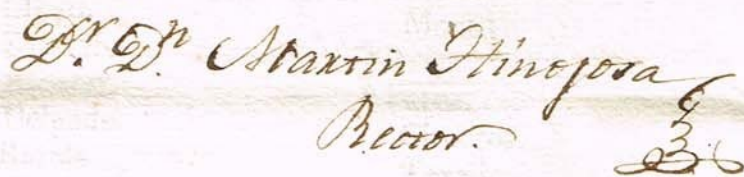 Dr. Dn Martin Hinojosa
Rector.